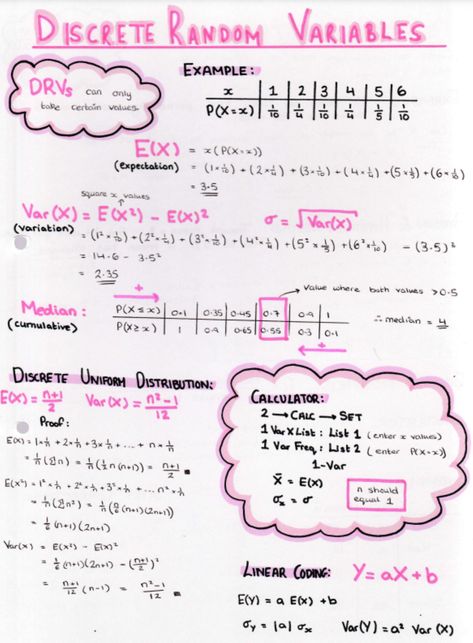 DISCRETE RANDOM VARIABLES
DRVs can only
take certain values.
EXAMPLE:
x | 1 | 2 | 3 | 4 | 5 | 6
P(X=x) | 1/10 | 1/4 | 1/10 | 1/4 | 1/5 | 1/10
E(X) = x(P(X=x))
(expectation) = (1×1/10) + (2×1/4) + (3×1/10) + (4×1/4) + (5×1/5) + (6×1/10)
= 3.5
square x values
Var(X) = E(X²) − E(X)²
σ = √Var(X)
(variation) = (1²×1/10) + (2²×1/4) + (3²×1/10) + (4²×1/4) + (5²×1/5) + (6²×1/10) − (3.5)²
= 14.6 − 3.5²
= 2.35
value where both values >0.5
Median:
(cumulative)
+
P(X≤x) | 0.1 | 0.35 | 0.45 | 0.7 | 0.9 | 1
P(X≥x) | 1 | 0.9 | 0.65 | 0.55 | 0.3 | 0.1
∴ median = 4
+
DISCRETE UNIFORM DISTRIBUTION:
E(X) = n+1/2 Var(X) = n²−1/12
Proof:
E(X) = 1×1/n + 2×1/n + 3×1/n + ... + n×1/n
= 1/n(Σn) = 1/n(½n(n+1)) = n+1/2
E(X²) = 1²×1/n + 2²×1/n + 3²×1/n + ... n²×1/n
= 1/n(Σn²) = 1/n(n/6(n+1)(2n+1))
= 1/6(n+1)(2n+1)
Var(X) = E(X²) − E(X)²
= 1/6(n+1)(2n+1) − (n+1/2)²
= n+1/12(n−1) = n²−1/12
CALCULATOR:
2 → CALC → SET
1 Var XList : List 1 (enter x values)
1 Var Freq : List 2 (enter P(X=x))
1-Var
x̄ = E(X)
σx = σ
n should
equal 1
LINEAR CODING: Y=aX+b
E(Y) = a E(X) + b
σY = |a| σx Var(Y) = a² Var(X)